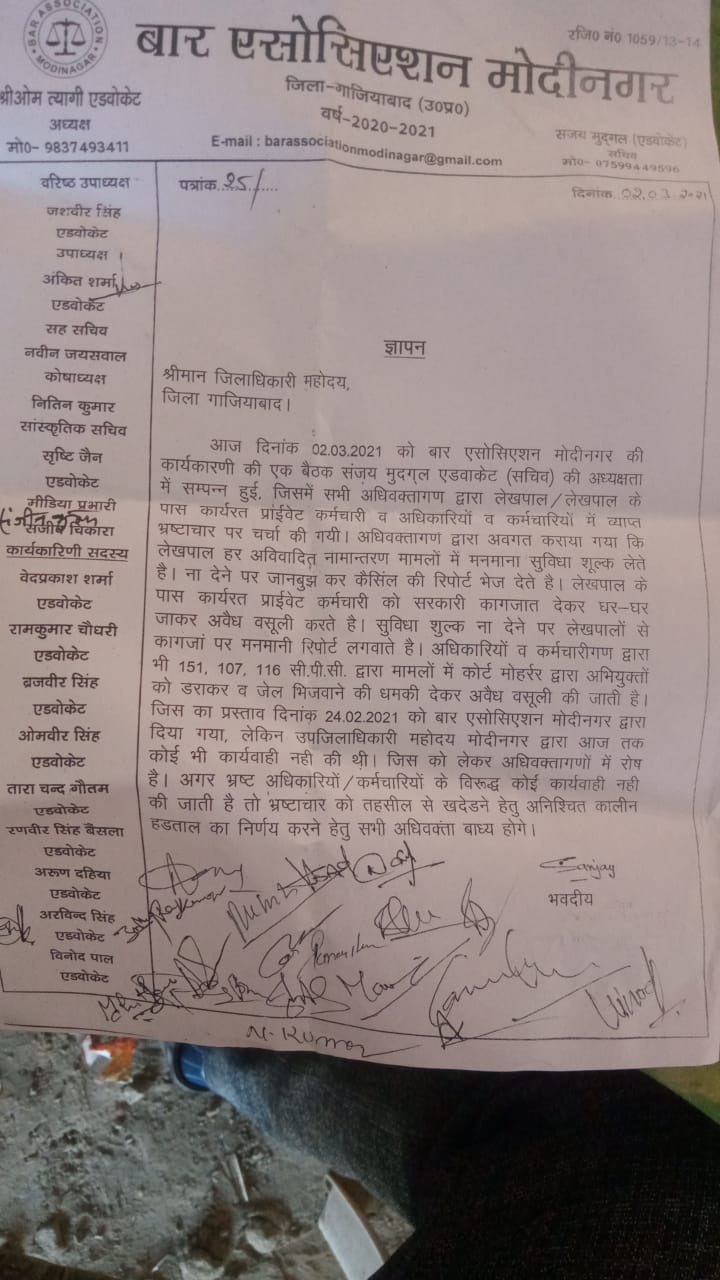 BAR ASSOCIATION
MODINAGAR
रजि0 नं0 1059/13-14
बार एसोसिएशन मोदीनगर
जिला-गाजियाबाद (उ0प्र0)
वर्ष-2020-2021
E-mail : barassociationmodinagar@gmail.com
श्रीओम त्यागी एडवोकेट
अध्यक्ष
मो0- 9837493411
संजय मुद्गल (एडवोकेट)
सचिव
मो0- 07599449596
पत्रांक..25/.....
दिनांक..02.03.2021
वरिष्ठ उपाध्यक्ष
जशवीर सिंह
एडवोकेट
उपाध्यक्ष
अंकित शर्मा
एडवोकेट
सह सचिव
नवीन जयसवाल
कोषाध्यक्ष
नितिन कुमार
सांस्कृतिक सचिव
सृष्टि जैन
एडवोकेट
मीडिया प्रभारी
संजीव चिकारा
कार्यकारिणी सदस्य
वेदप्रकाश शर्मा
एडवोकेट
रामकुमार चौधरी
एडवोकेट
ब्रजवीर सिंह
एडवोकेट
ओमवीर सिंह
एडवोकेट
तारा चन्द गौतम
एडवोकेट
रणवीर सिंह बैसला
एडवोकेट
अरूण दहिया
एडवोकेट
अरविन्द सिंह
एडवोकेट
विनोद पाल
एडवोकेट
ज्ञापन
श्रीमान जिलाधिकारी महोदय,
जिला गाजियाबाद।
आज दिनांक 02.03.2021 को बार एसोसिएशन मोदीनगर की
कार्यकारणी की एक बैठक संजय मुदग्ल एडवाकेट (सचिव) की अध्यक्षता
में सम्पन्न हुई, जिसमें सभी अधिवक्तागण द्वारा लेखपाल/लेखपाल के
पास कार्यरत प्रांईवेट कर्मचारी व अधिकारियों व कर्मचारियों में व्याप्त
भ्रष्टाचार पर चर्चा की गयी। अधिवक्तागण द्वारा अवगत कराया गया कि
लेखपाल हर अविवादित नामान्तरण मामलों में मनमाना सुविधा शूल्क लेते
है। ना देने पर जानबुझ कर कैसिंल की रिपोर्ट भेज देते है। लेखपाल के
पास कार्यरत प्राईवेट कर्मचारी को सरकारी कागजात देकर घर-घर
जाकर अवैध वसूली करते है। सुविधा शुल्क ना देने पर लेखपालों से
कागजां पर मनमानी रिपोर्ट लगवाते है। अधिकारियों व कर्मचारीगण द्वारा
भी 151, 107, 116 सी.पी.सी. द्वारा मामलों में कोर्ट मोहर्रर द्वारा अभियुक्तों
को डराकर व जेल भिजवाने की धमकी देकर अवैध वसूली की जाती है।
जिस का प्रस्ताव दिनांक 24.02.2021 को बार एसोसिएशन मोदीनगर द्वारा
दिया गया, लेकिन उपजिलाधिकारी महोदय मोदीनगर द्वारा आज तक
कोई भी कार्यवाही नही की थी। जिस को लेकर अधिवक्तागणों में रोष
है। अगर भ्रष्ट अधिकारियों/कर्मचारियों के विरूद्ध कोई कार्यवाही नही
की जाती है तो भ्रष्टाचार को तहसील से खदेडने हेतु अनिश्चित कालीन
हडताल का निर्णय करने हेतु सभी अधिवक्ता बाध्य होगे।
Sanjay
भवदीय
Vinod
N. Kumar